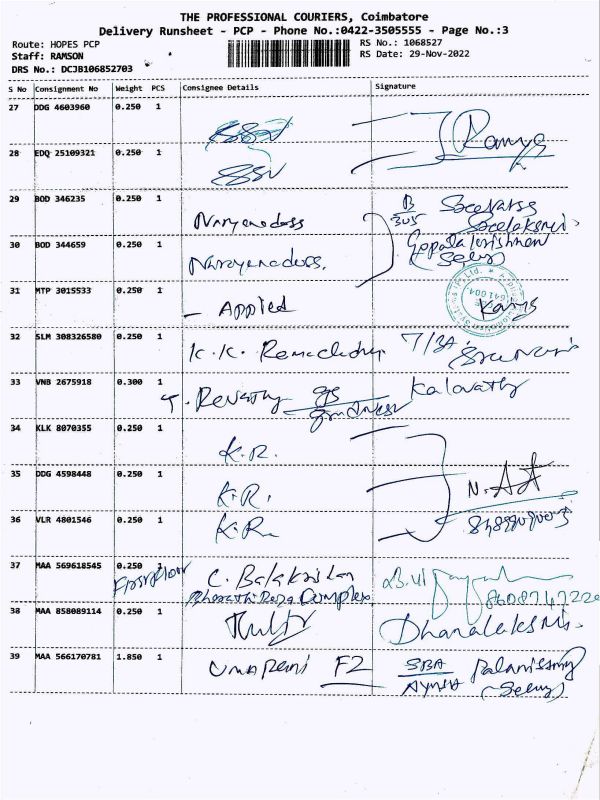 THE PROFESSIONAL COURIERS, Coimbatore
Delivery Runsheet - PCP - Phone No.:0422-3505555 - Page No.:3
Route: HOPES PCP
Staff: RAMSON
DRS No.: DCJB106852703
RS No.: 1068527
RS Date: 29-Nov-2022
S No Consignment No Weight PCS Consignee Details Signature
27 DDG 4603960 0.250 1 SSV
28 EDQ 25109321 0.250 1 SSV Ramya
29 BOD 346235 0.250 1 Narayanadoss B 305
30 BOD 344659 0.250 1 Narayanadoss. Gopalakrishnan
(Selvs)
31 MTP 3015533 0.250 1 - Applied
32 SLM 308326580 0.250 1 K.K. T/3A.
33 VNB 2675918 0.300 1 T. Revathy Kalavathy
34 KLK 8070355 0.250 1 K.R.
35 DDG 4598448 0.250 1 K.R.
36 VLR 4801546 0.250 1 K.R.
37 MAA 569618545 0.250 First floor C. Balakrishnan
Complex
38 MAA 858089114 0.250 1 Dhanalakshmi.
39 MAA 566170781 1.850 1 Umarani F2 SBA Palanisamy